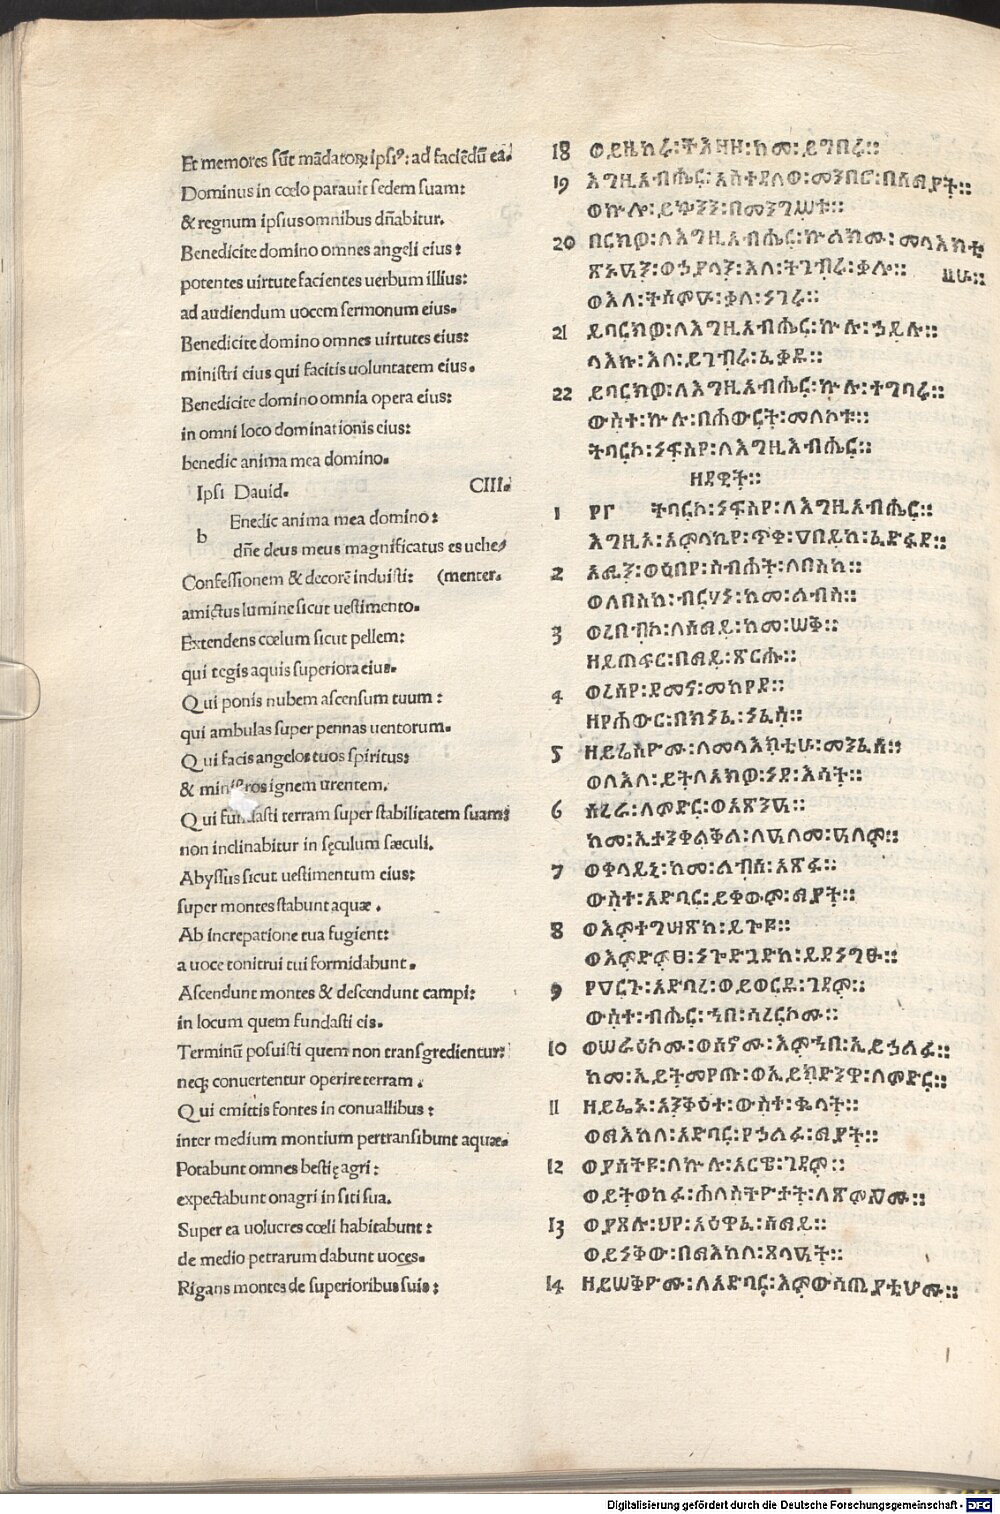 Et memores sūt mādatorꝝ ipsiꝰ: ad faciēdū ea.
Dominus in cœlo parauit sedem suam:
& regnum ipsius omnibus dn̄abitur.
Benedicite domino omnes angeli eius:
potentes uirtute facientes uerbum illius:
ad audiendum uocem sermonum eius.
Benedicite domino omnes uirtutes eius:
ministri eius qui facitis uoluntatem eius.
Benedicite domino omnia opera eius:
in omni loco dominationis eius:
benedic anima mea domino.
Ipsi Dauid. CIII.
b Enedic anima mea domino:
dn̄e deus meus magnificatus es uehe/
Confessionem & decorē induisti: (menter.
amictus lumine sicut uestimento.
Extendens cœlum sicut pellem:
qui tegis aquis superiora eius.
Qui ponis nubem ascensum tuum:
qui ambulas super pennas uentorum.
Qui facis angelos tuos spiritus:
& ministros ignem urentem.
Qui fundasti terram super stabilitatem suam:
non inclinabitur in sęculum sæculi.
Abyssus sicut uestimentum eius:
super montes stabunt aquæ.
Ab increpatione tua fugient:
a uoce tonitrui tui formidabunt.
Ascendunt montes & descendunt campi:
in locum quem fundasti eis.
Terminū posuisti quem non transgredientur:
neq; conuertentur operire terram.
Qui emittis fontes in conuallibus:
inter medium montium pertransibunt aquæ.
Potabunt omnes bestię agri:
expectabunt onagri in siti sua.
Super ea uolucres cœli habitabunt:
de medio petrarum dabunt uoces.
Rigans montes de superioribus suis:
18 ወይዜከሩ፡ትእዛዞ፡ከመ፡ይግበሩ።
19 እግዚአብሔር፡አስተደለወ፡መንበሮ፡በሰማያት።
ወኵሎ፡ይኴንን፡በመንግሥቱ።
20 ባርክዎ፡ለእግዚአብሔር፡ኵልክሙ፡መላእክቲ
ጽኑዓን፡ወኃያላን፡እለ፡ትገብሩ፡ቃሎ። ሁ።
ወእለ፡ትሰምዑ፡ቃለ፡ነገሩ።
21 ይባርክዎ፡ለእግዚአብሔር፡ኵሉ፡ኃይሉ።
ላእኩ፡እለ፡ይገብሩ፡ፈቃዶ።
22 ይባርክዎ፡ለእግዚአብሔር፡ኵሉ፡ተግባሩ።
ውስተ፡ኵሉ፡በሐውርት፡መለኮቱ።
ትባርኮ፡ነፍስየ፡ለእግዚአብሔር።
ዘዳዊት።
1 ፻፫ ትባርኮ፡ነፍስየ፡ለእግዚአብሔር።
እግዚኦ፡አምላኪየ፡ጥቀ፡ዐበይከ፡ፈድፋደ።
2 አሚነ፡ወሠናየ፡ስብሐት፡ለበስከ።
ወለበስከ፡ብርሃነ፡ከመ፡ልብስ።
3 ወረበብኮ፡ለሰማይ፡ከመ፡ሠቅ።
ዘይጠፍር፡በማይ፡ጽርሖ።
4 ወረሰየ፡ደመና፡መከየደ።
ዘየሐውር፡በክነፈ፡ነፋስ።
5 ዘይሬስዮሙ፡ለመላእክቲሁ፡መንፈሰ።
ወለእለ፡ይትለአክዎ፡ነደ፡እሳት።
6 ሳረራ፡ለምድር፡ወአጽንዓ።
ከመ፡ኢታንቀልቅል፡ለዓለመ፡ዓለም።
7 ወቀላይኒ፡ከመ፡ልብስ፡አጽፉ።
ውስተ፡አድባር፡ይቀውም፡ማያት።
8 ወእምተግሣጽከ፡ይጐዩ።
ወእምድምፀ፡ነጐድጓድከ፡ይደነግፁ።
9 የዐርጉ፡አድባረ፡ወይወርዱ፡ገዳመ።
ውስተ፡ብሔር፡ኀበ፡ሳረርኮሙ።
10 ወሠራዕኮሙ፡ወሰኖሙ፡እምኀበ፡ኢይኃልፉ።
ከመ፡ኢይትመየጡ፡ወኢይክድንዋ፡ለምድር።
11 ዘይፌኑ፡አንቅዕተ፡ውስተ፡ቈላት።
ወማእከለ፡አድባር፡የኃልፉ፡ማያት።
12 ወያሰትዩ፡ለኵሉ፡አርዌ፡ገዳም።
ወይትወከፉ፡ሐለስትዮታት፡ለጽምዖሙ።
13 ወያጸሉ፡ህየ፡አዕዋፈ፡ሰማይ።
ወይነቅው፡በማእከለ፡ጸዳፋት።
14 ዘይሠቅዮሙ፡ለአድባር፡እምውሳጤያቲሆሙ።
Digitalisierung gefördert durch die Deutsche Forschungsgemeinschaft - DFG